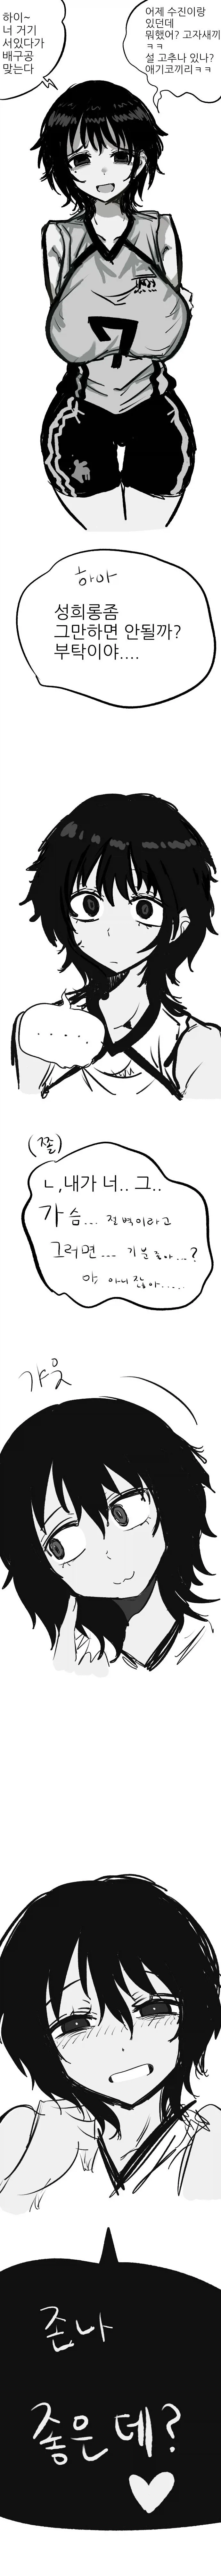 하이~
너 거기
서있다가
배구공
맞는다
어제 수진이랑
있던데
뭐했어? 고자새끼
ㅋㅋ
설 고추나 있나?
애기코끼리ㅋㅋ
7
하아
성희롱좀
그만하면 안될까?
부탁이야....
.....
(쫄)
ㄴ,내가 너.. 그..
가슴... 절벽이라고
그러면... 기분 좋아...?
아니잖아.....
갸웃
존나
좋은데?